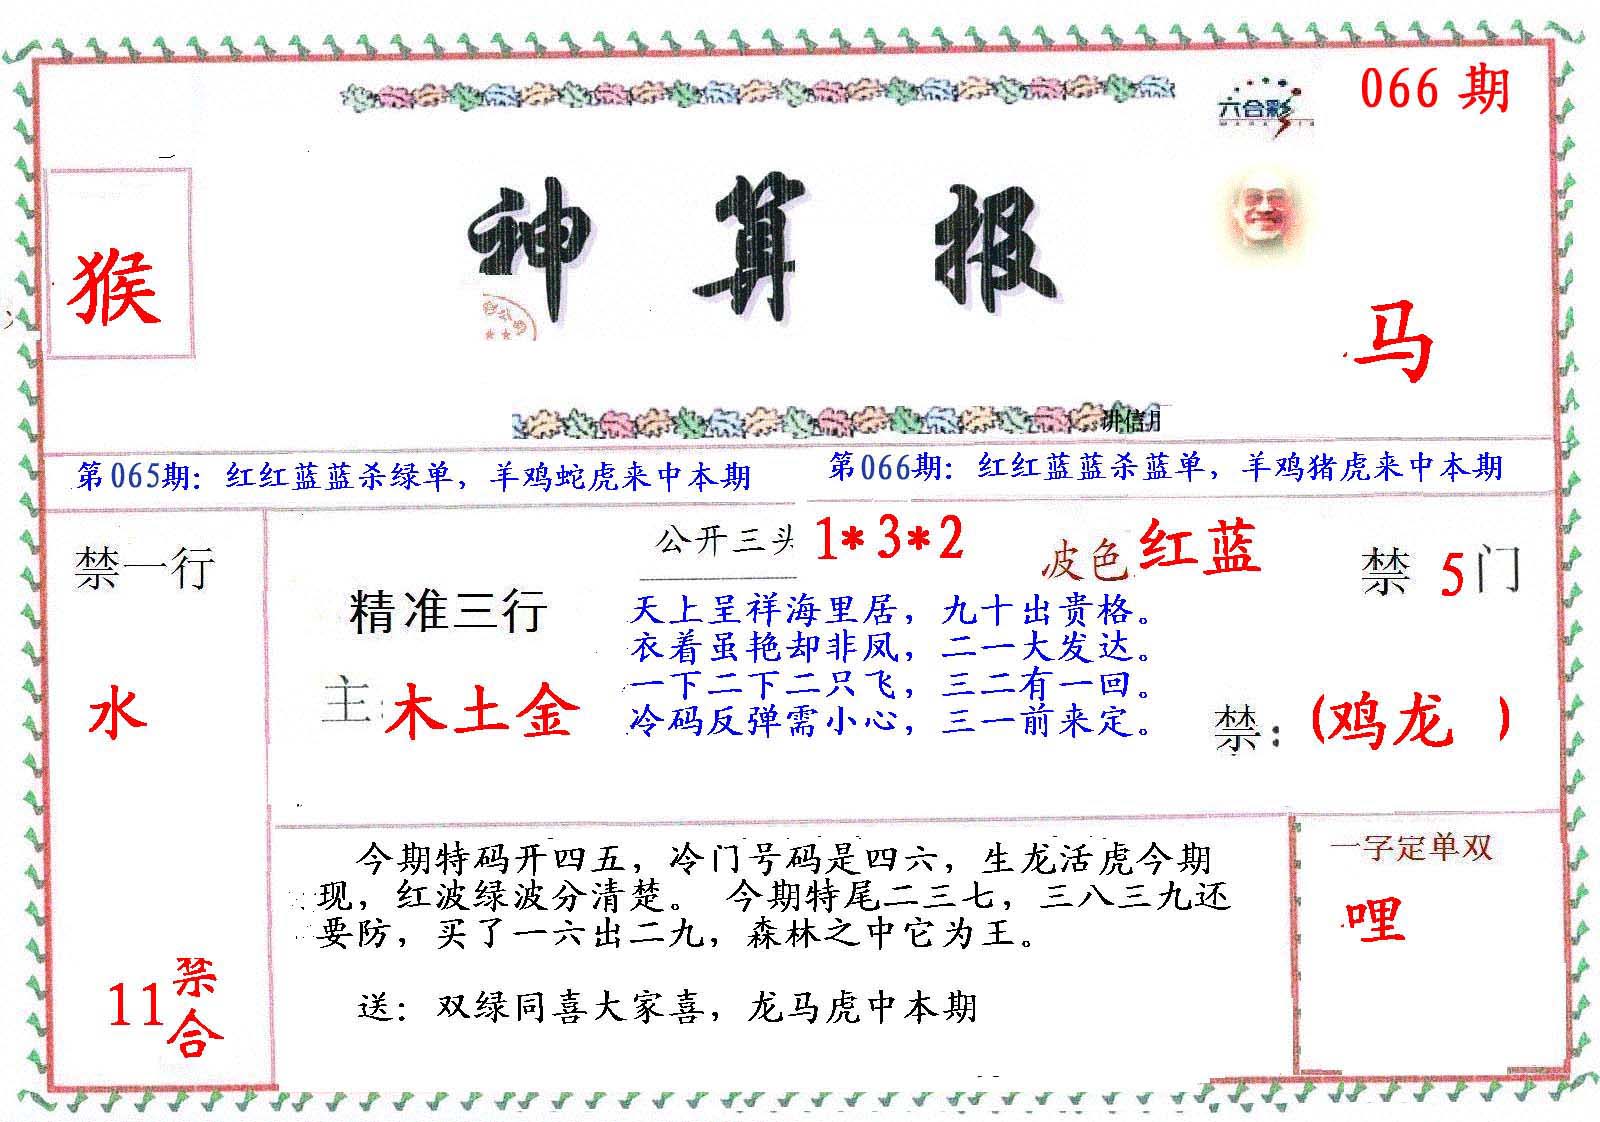 066 期
六合彩
猴
神算报
马
讲信用
第065期：红红蓝蓝杀绿单，羊鸡蛇虎来中本期
第066期：红红蓝蓝杀蓝单，羊鸡猪虎来中本期
禁一行
水
11禁合
精准三行
主：木土金
公开三头 1*3*2
波色 红蓝
天上呈祥海里居，九十出贵格。
衣着虽艳却非凤，二一大发达。
一下二下二只飞，三二有一回。
冷码反弹需小心，三一前来定。
禁 5 门
禁：(鸡龙 )
今期特码开四五，冷门号码是四六，生龙活虎今期
现，红波绿波分清楚。 今期特尾二三七，三八三九还
要防，买了一六出二九，森林之中它为王。
送：双绿同喜大家喜，龙马虎中本期
一字定单双
哩